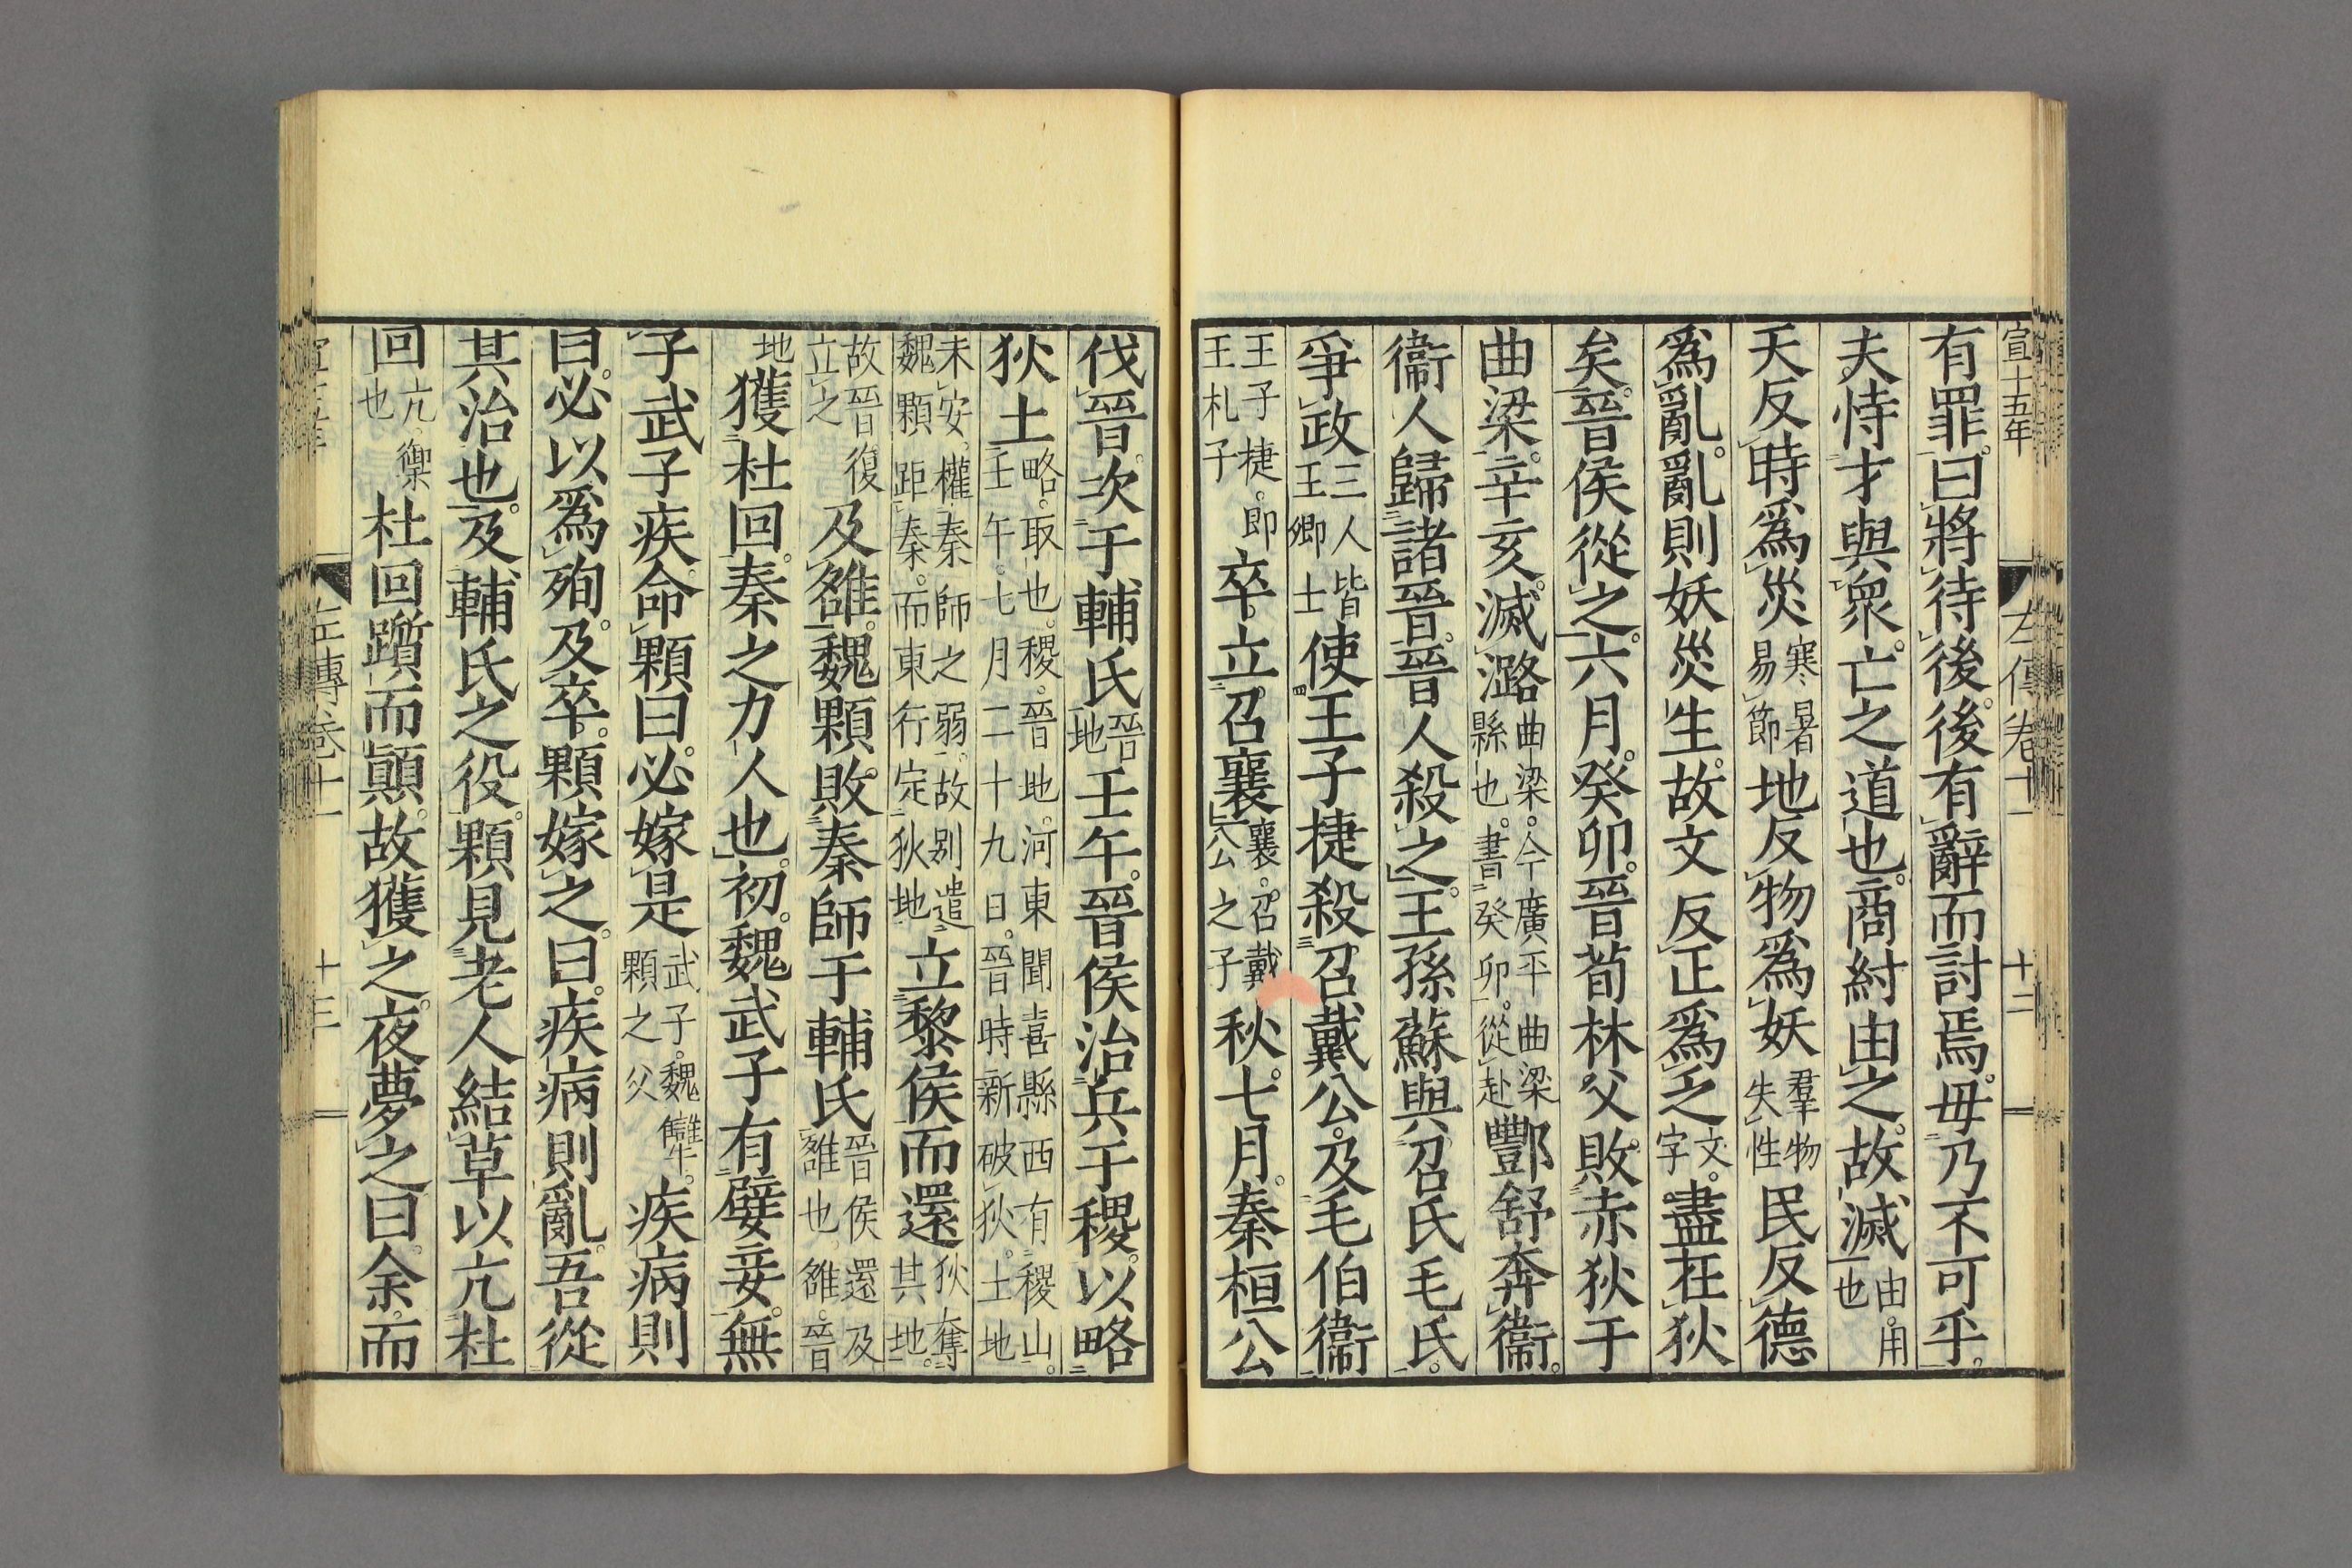 宣十五年 左傳卷十一 十二
有罪。曰將待後。後有辭而討焉。毋乃不可乎。
夫恃才與衆。亡之道也。商紂由之。故滅由。用也
天反時爲災寒、暑易節地反物爲妖羣物失性民反德
爲亂。亂則妖災生。故文反正爲乏文。字盡在狄
矣。晉侯從之。六月。癸卯。晉荀林父敗赤狄于
曲梁。辛亥。滅潞曲梁。今廣平曲梁縣也。書癸卯。從赴酆舒奔衞。
衞人歸諸晉。晉人殺之。王孫蘇與召氏毛氏。
爭政三人皆王卿士使王子捷殺召戴公。及毛伯衞
王子捷。即王札子卒。立召襄襄。召戴公之子秋。七月。秦桓公
伐晉。次于輔氏晉地壬午。晉侯治兵于稷。以略
狄土略。取也。稷。晉地。河東聞喜縣西有稷山。壬午。七月二十九日。晉時新破狄。土地
未安。權秦師之弱。故別遣魏顆距秦。而東行定狄地立黎侯而還狄奪其地。
故晉復立之及雒。魏顆敗秦師于輔氏晉侯還及雒也。雒。晉
地獲杜回。秦之力人也。初。魏武子有嬖妾。無
子武子疾。命顆曰。必嫁是武子。魏犨。顆之父疾病則
曰。必以爲殉。及卒。顆嫁之。曰。疾病則亂。吾從
其治也。及輔氏之役。顆見老人結草以亢杜
回亢。禦也杜回躓而顚。故獲之。夜夢之曰。余。而
左傳卷十一 十三